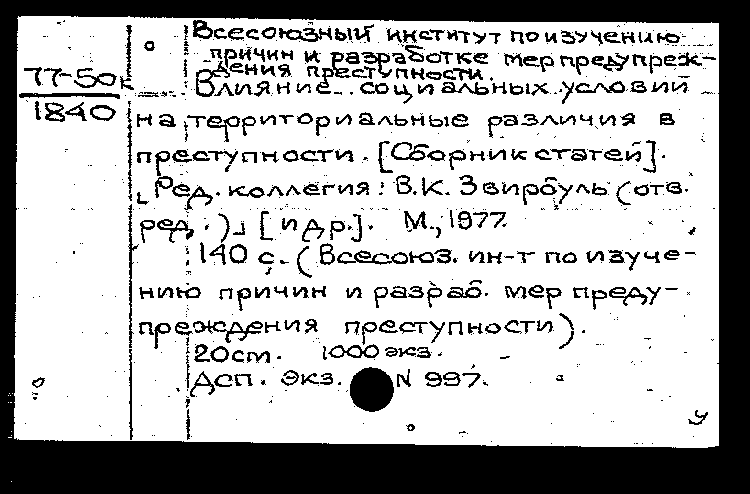 Всесоюзный институт по изучению
причин и разработке мер предупреж-
дения преступности.
77-50к
1840
Влияние социальных условий
на территориальные различия в
преступности. [Сборник статей].
Ред. коллегия: В.К. Звирбуль (отв.
ред.)⌟ [и др.]. М., 1977.
140 с. (Всесоюз. ин-т по изуче-
нию причин и разраб. мер преду-
преждения преступности).
20 cm. 1000 экз.
ДСП. Экз. N 997.
у